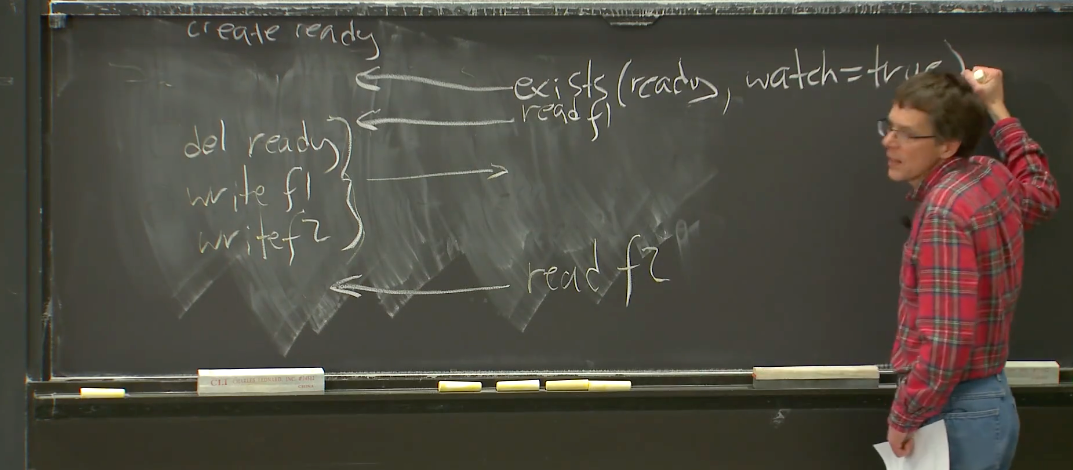 create ready
exists(ready, watch=true)
read f1
del ready
write f1
write f2
read f2